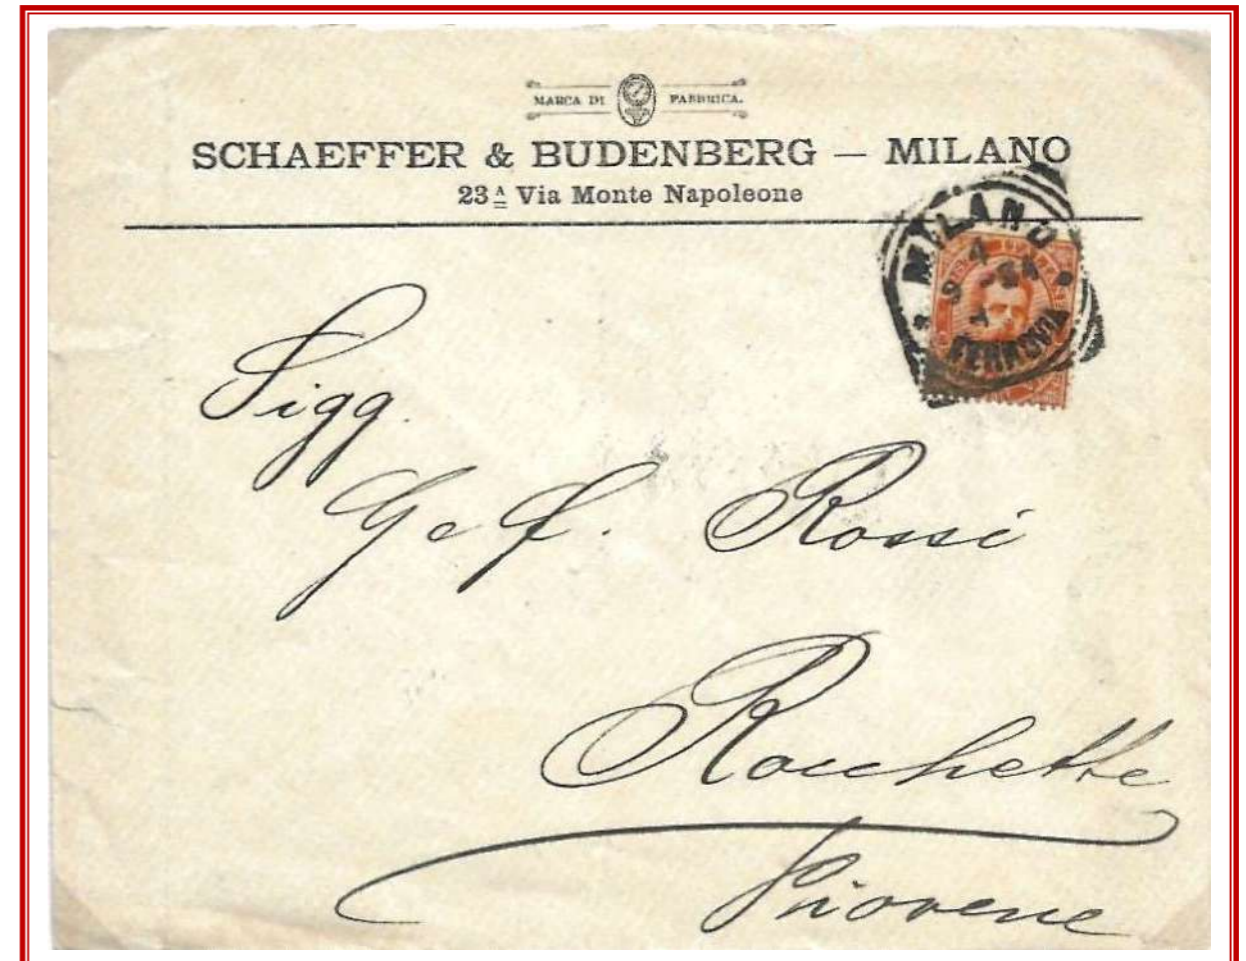 MARCA DI FABBRICA.
SCHAEFFER & BUDENBERG — MILANO
23A Via Monte Napoleone
MILANO
4
FERROVIA
Sigg.
G e F. Rossi
Rocchette
Piovene